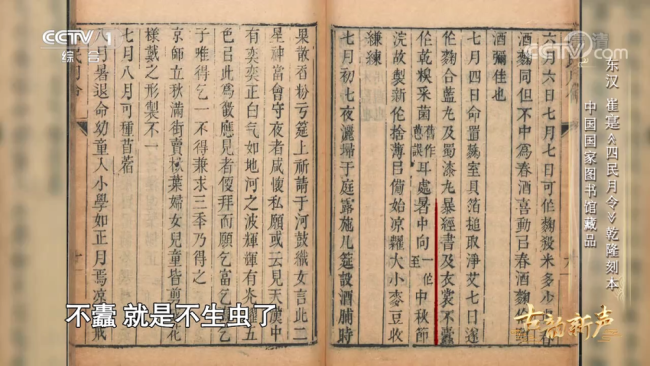 CCTV 1
综合
CCTV.com
高清
东汉 崔寔《四民月令》乾隆刻本
中国国家图书馆藏品
六月六日七月七日可作麴
酒麴同但不中為春酒喜動弓春酒麴
酒彌佳也
七月四日命置麴室具箔槌取淨艾七日遂
作麴合藍丸及蜀漆丸暴經書及衣裳不蠹
作乾糗采 耳處暑中向一作中秋節
浣故製新作袷薄㠯備始凉糶大小麥豆收
縑練
七月初七夜灑掃于庭露施几筵設酒脯時
果散香粉于筵上祈請于河鼓織女言此二
星神當會守夜者咸懷私願或云見天漢中
有奕奕正白气如地河之波輝輝有光 五
色㠯此為徵應見者便拜而願乞富乞
子唯得乞一不得兼求三秊乃得之
京師立秋滿街賣楸葉婦女兒童皆剪
樣戴之形製不一
七月八月可種苜蓿
八月暑退命幼童入小學如正月焉凉 戒
不蠹 就是不生虫了
古韵新声